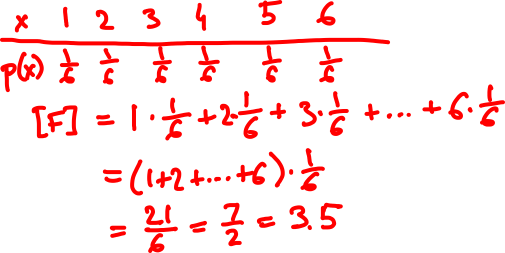 x 1 2 3 4 5 6
p(x) 1/6 1/6 1/6 1/6 1/6 1/6
[F] = 1 · 1/6 + 2 · 1/6 + 3 · 1/6 + ... + 6 · 1/6
= (1+2+...+6) · 1/6
= 21/6 = 7/2 = 3.5